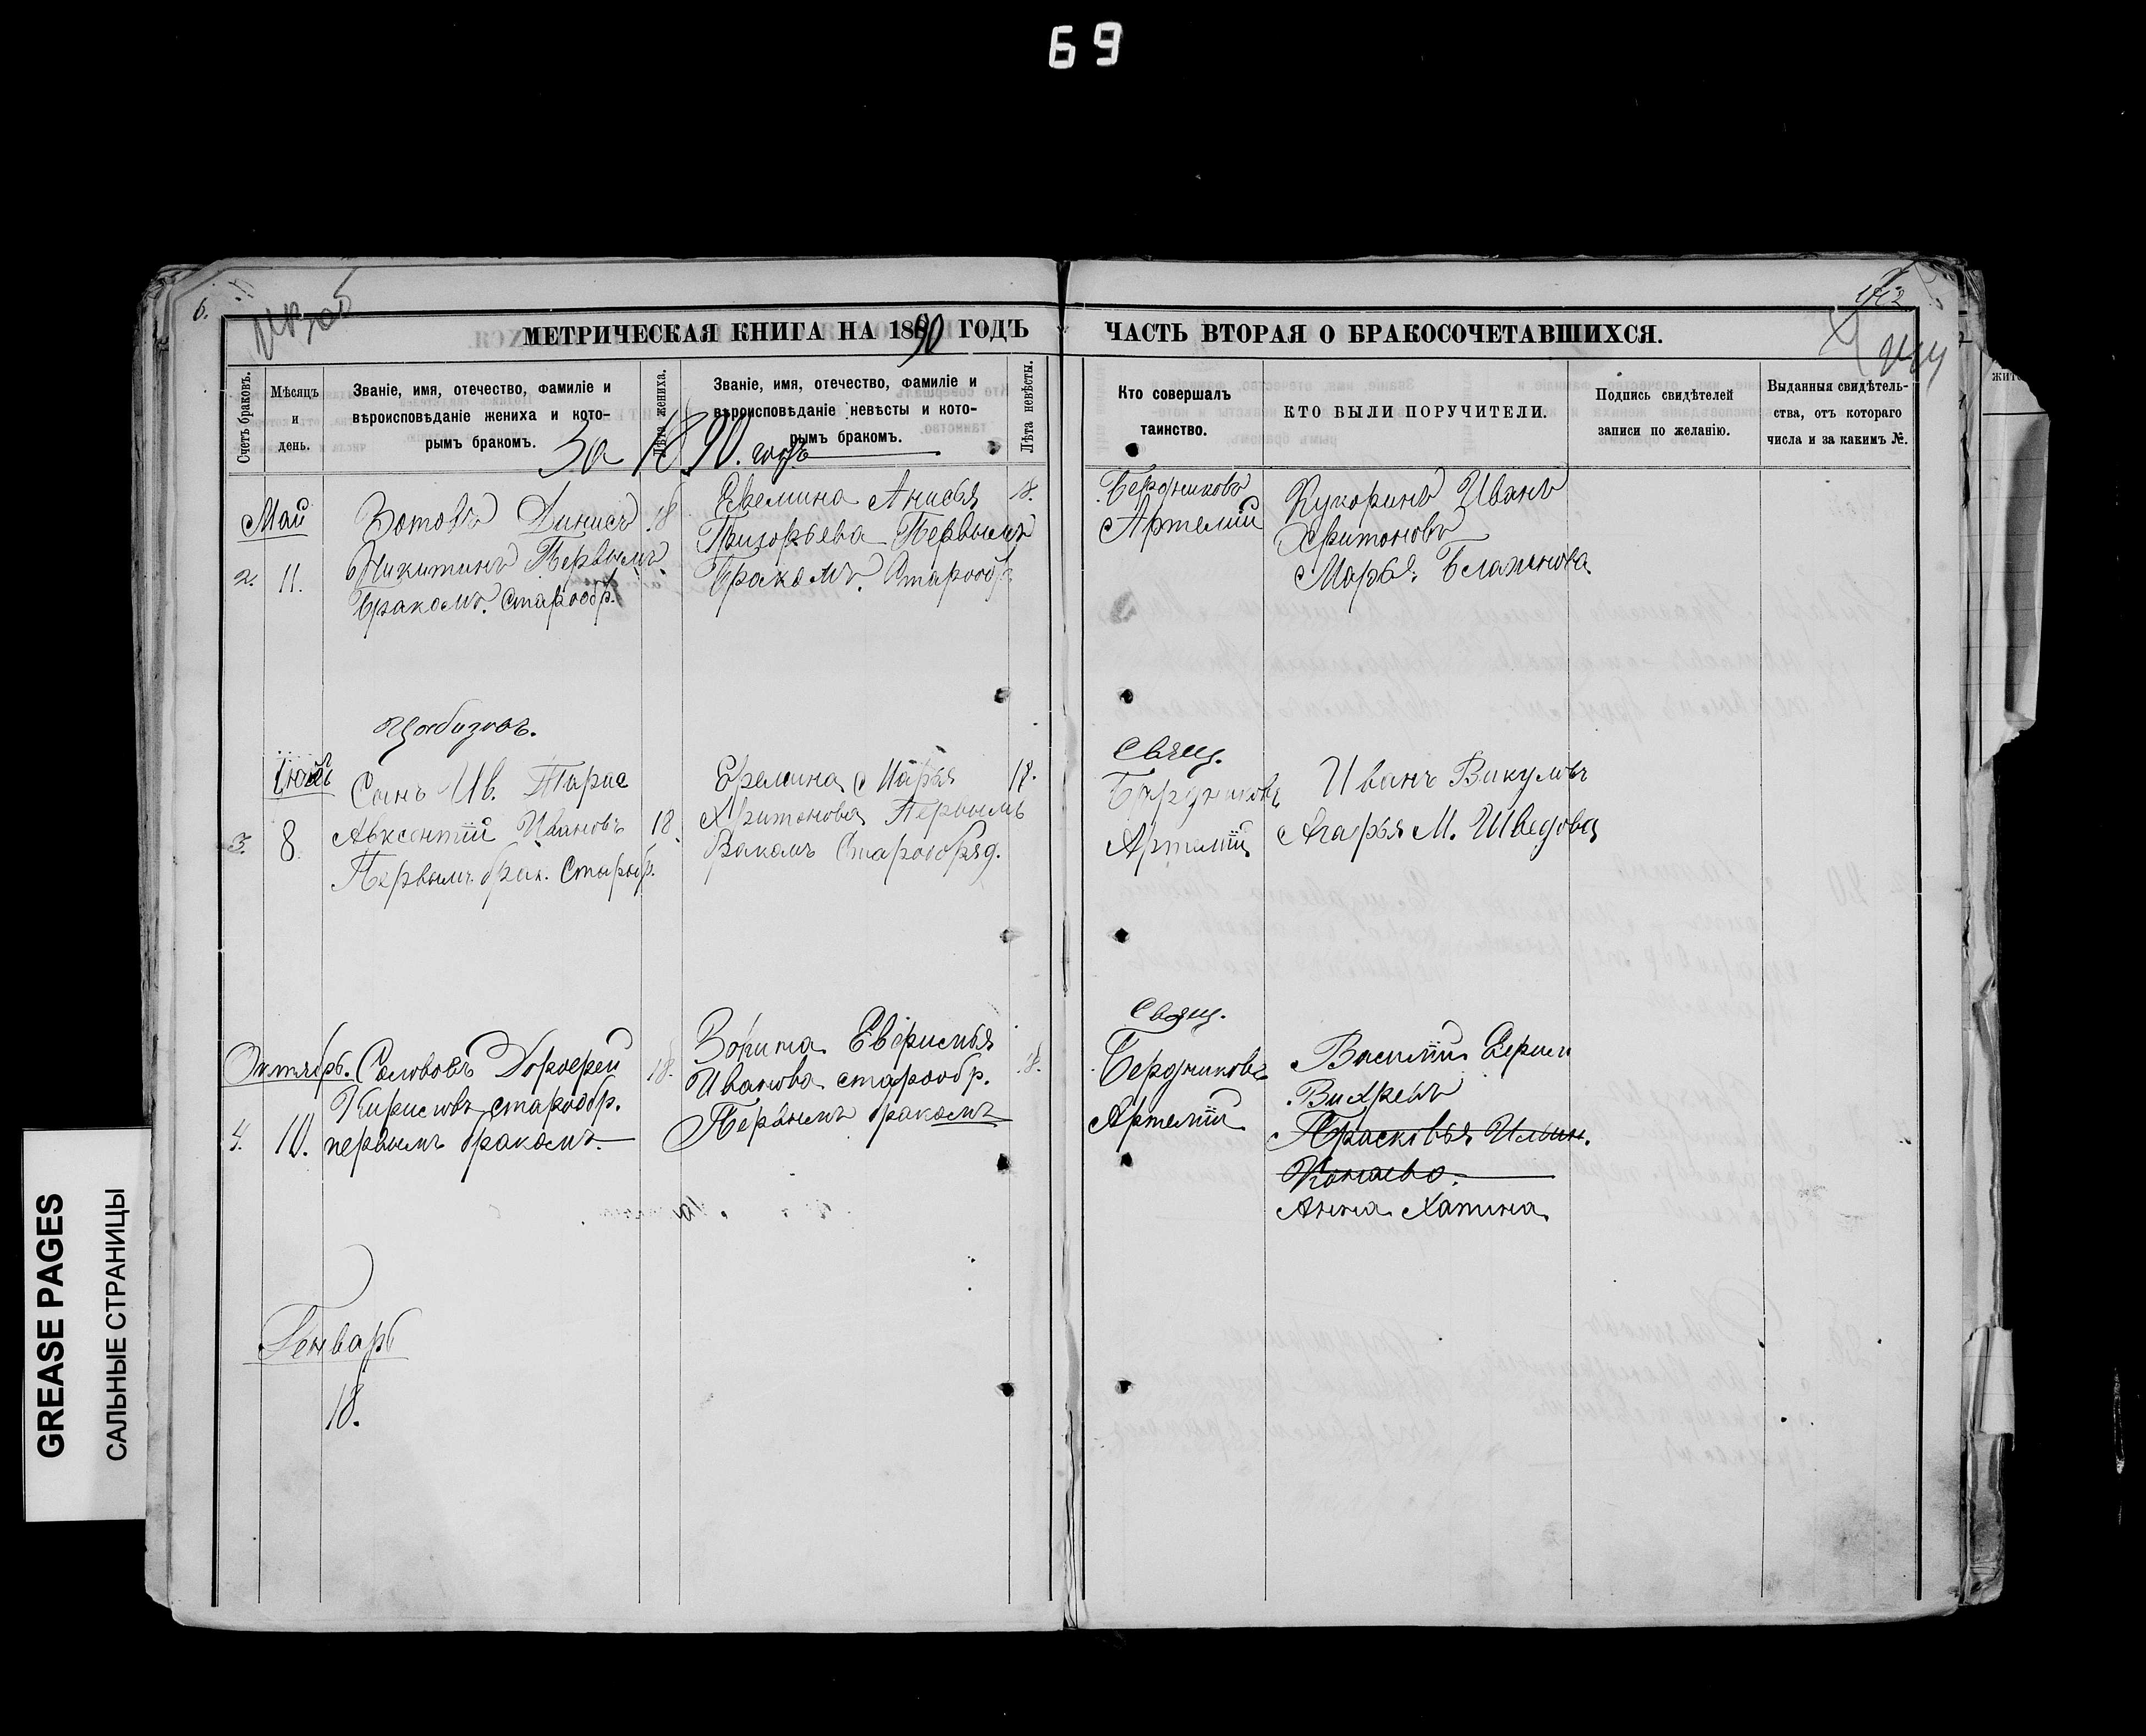 69
6.
МЕТРИЧЕСКАЯ КНИГА НА 1890 ГОДЪ
ЧАСТЬ ВТОРАЯ О БРАКОСОЧЕТАВШИХСЯ.
Счетъ браковъ.
Мѣсяцъ
и
день.
Званіе, имя, отечество, фамиліе и
вѣроисповѣданіе жениха и кото-
рымъ бракомъ.
Лѣта жениха.
Званіе, имя, отечество, фамиліе и
вѣроисповѣданіе невѣсты и кото-
рымъ бракомъ.
Лѣта невѣсты.
Кто совершалъ
таинство.
КТО БЫЛИ ПОРУЧИТЕЛИ.
Подпись свидѣтелей
записи по желанію.
Выданныя свидѣтель-
ства, отъ котораго
числа и за какимъ №.
За 1890. годъ
Май
2. 11.
Зотовъ Динисъ
Никитинъ Первымъ
бракомъ. старообр.
18
Еремина Анисья
Григорьева Первымъ
бракомъ. Старообр.
18.
Бердниковъ
Артемій
Кукоринъ Иванъ
Харитоновъ
Марья
3. 8.
Сынъ Ив. Тарас
Авксентій Ивановъ
Первымъ брак. Старообр.
18
Еремина Марья
Харитоновна Первымъ
Бракомъ Старообряд.
18.
Свящ.
Бердниковъ
Артемій
Иванъ Викуловъ
Агафья М. Шведова
Октябрь.
4. 10.
Солововъ Дорофей
Кириловъ старообр.
первымъ бракомъ
18.
Зотина Евфимья
Иванова старообр.
Первымъ бракомъ
18.
Свящ.
Бердниковъ
Артемій
Василій
Вихревъ
Прасковья Ильин.
Анна Хапина
Генварь
18.
GREASE PAGES
САЛЬНЫЕ СТРАНИЦЫ